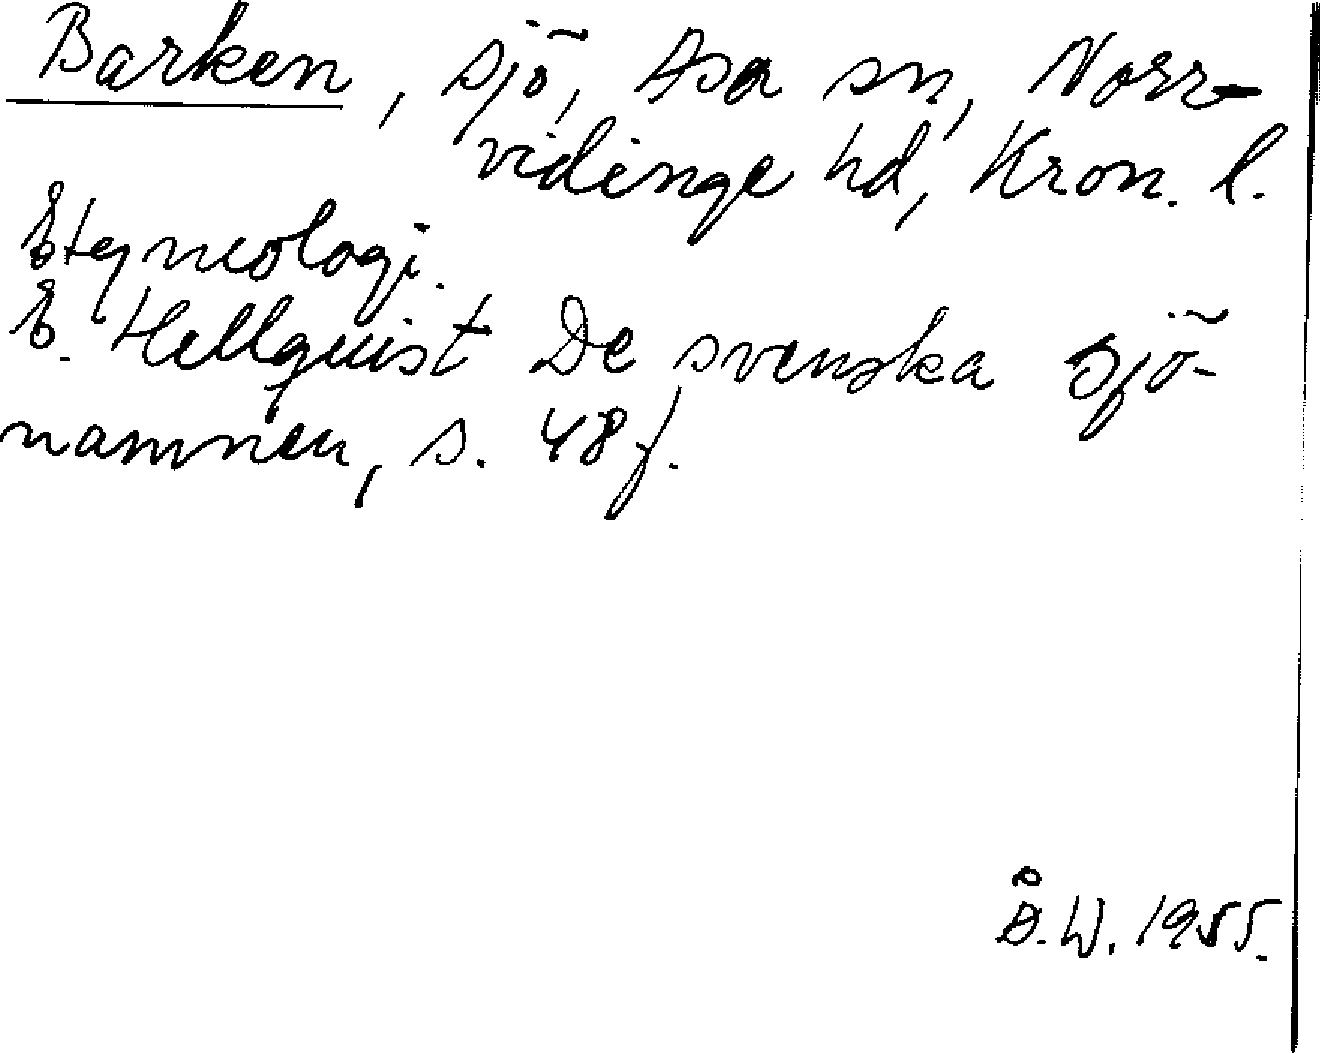 Barken, sjö, Asa sn, Norr-
vidinge hd, Kron. l.
Etymologi.
E. Hellquist De svenska sjö-
namnen, s. 48 f.
Å.W. 1955.